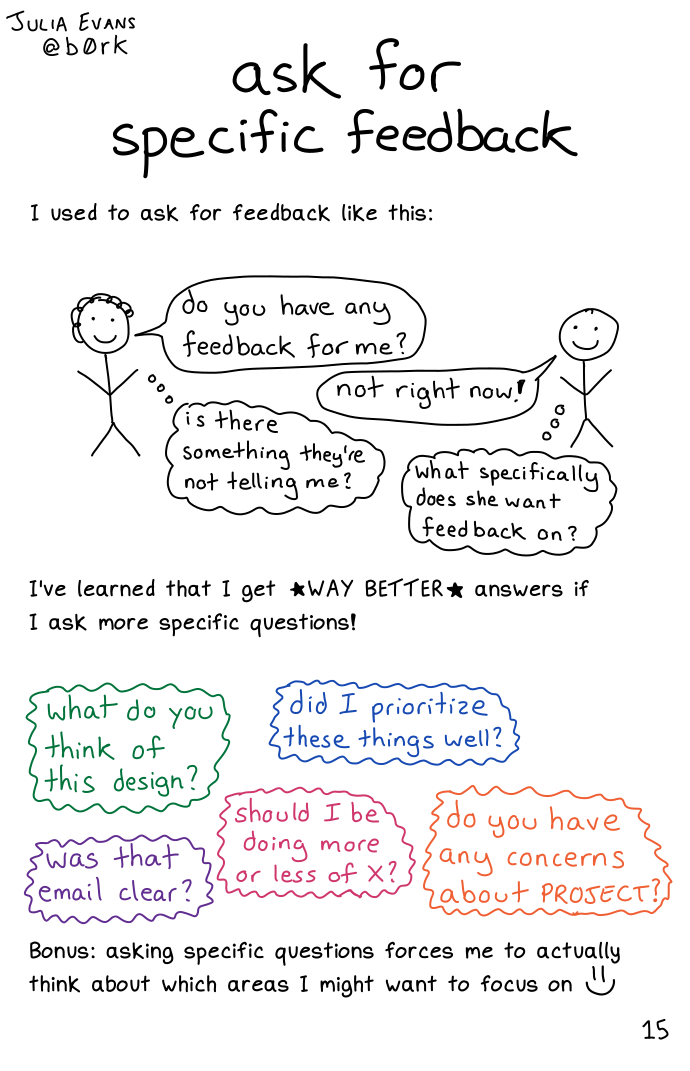 JULIA EVANS
@b0rk
ask for
specific feedback
I used to ask for feedback like this:
do you have any
feedback for me?
not right now!
is there
something they're
not telling me?
what specifically
does she want
feedback on?
I've learned that I get ★WAY BETTER★ answers if
I ask more specific questions!
what do you
think of
this design?
did I prioritize
these things well?
should I be
doing more
or less of X?
do you have
any concerns
about PROJECT?
was that
email clear?
Bonus: asking specific questions forces me to actually
think about which areas I might want to focus on
15